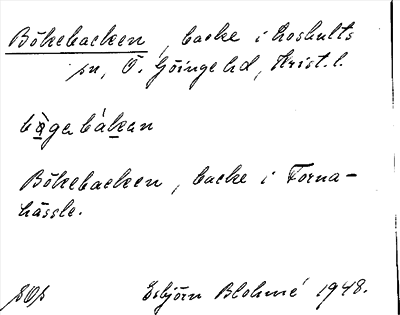 Bökebacken, backe i Loshults
sn, Ö. Göinge hd, Krist. l.
bögabákan
Bökebacken, backe i Forna-
hässle.
SOs
Esbjörn Blohmé 1948.